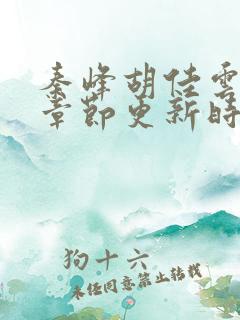 秦峰胡佳雲
章節更新時
狗十六
未经同意禁止转载